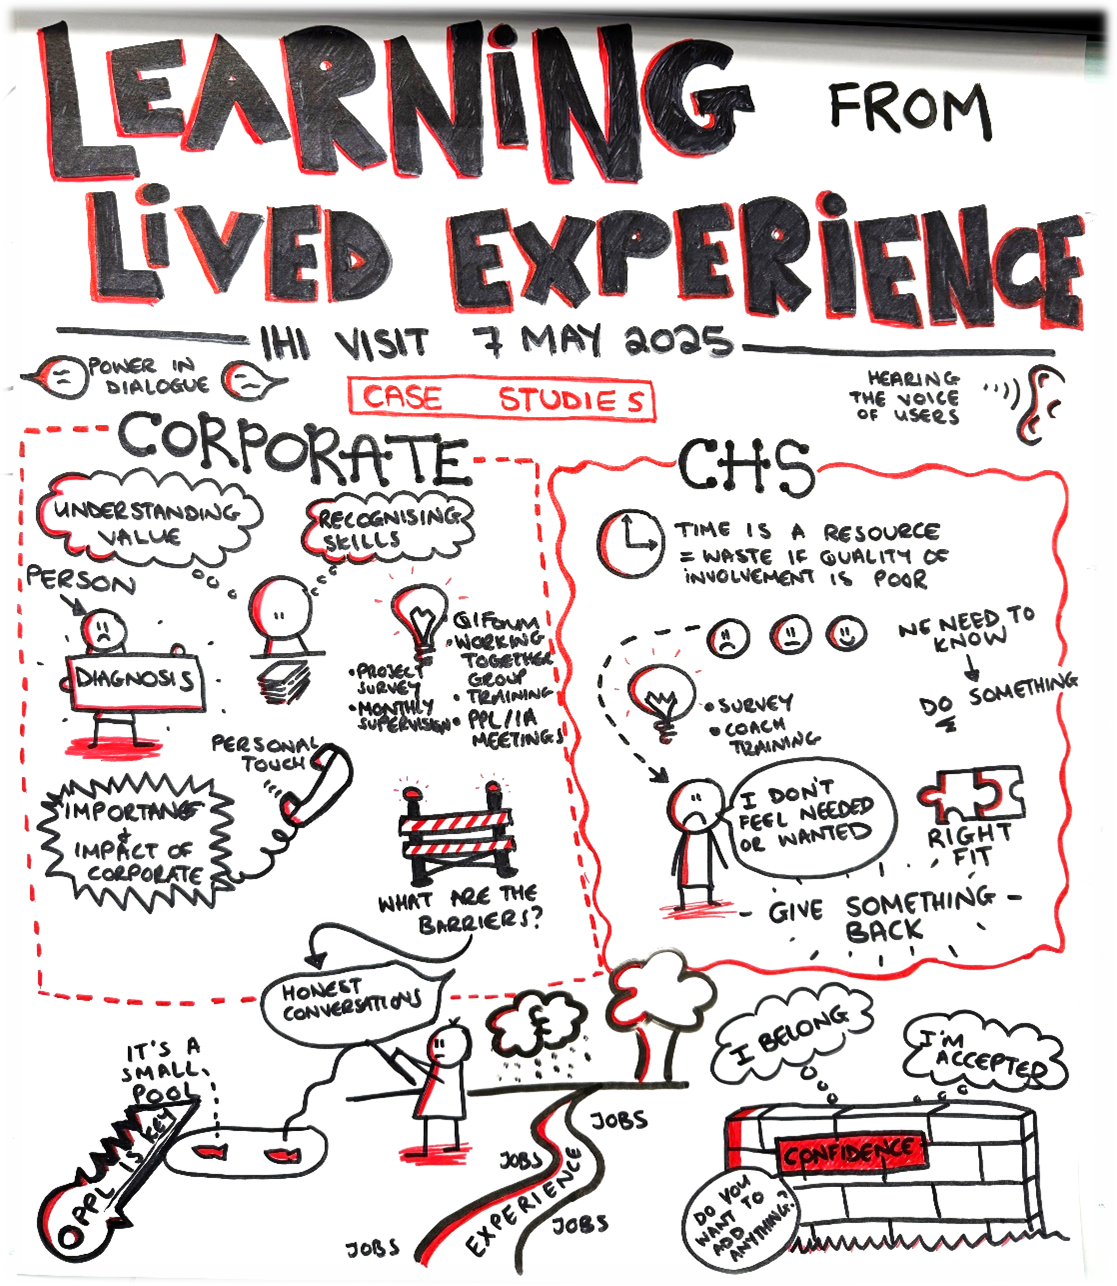 LEARNING FROM
LIVED EXPERIENCE
IHI VISIT 7 MAY 2025
POWER IN
DIALOGUE
CASE STUDIES
HEARING
THE VOICE
OF USERS
CORPORATE
UNDERSTANDING
VALUE
RECOGNISING
SKILLS
PERSON
DIAGNOSIS
• PROJECT
SURVEY
• MONTHLY
SUPERVISION
QI FORUM
• WORKING
TOGETHER
GROUP
• TRAINING
• PPL/IA
MEETINGS
PERSONAL
TOUCH
IMPORTANCE
&
IMPACT OF
CORPORATE
WHAT ARE THE
BARRIERS?
HONEST
CONVERSATIONS
CHS
TIME IS A RESOURCE
= WASTE IF QUALITY OF
INVOLVEMENT IS POOR
WE NEED TO
KNOW
DO SOMETHING
• SURVEY
• COACH
TRAINING
I DON'T
FEEL NEEDED
OR WANTED
RIGHT
FIT
- GIVE SOMETHING -
BACK
IT'S A
SMALL
POOL
PPL IS KEY
JOBS
JOBS
EXPERIENCE
JOBS
JOBS
I BELONG
I'M
ACCEPTED
CONFIDENCE
DO YOU
WANT TO
ADD
ANYTHING?